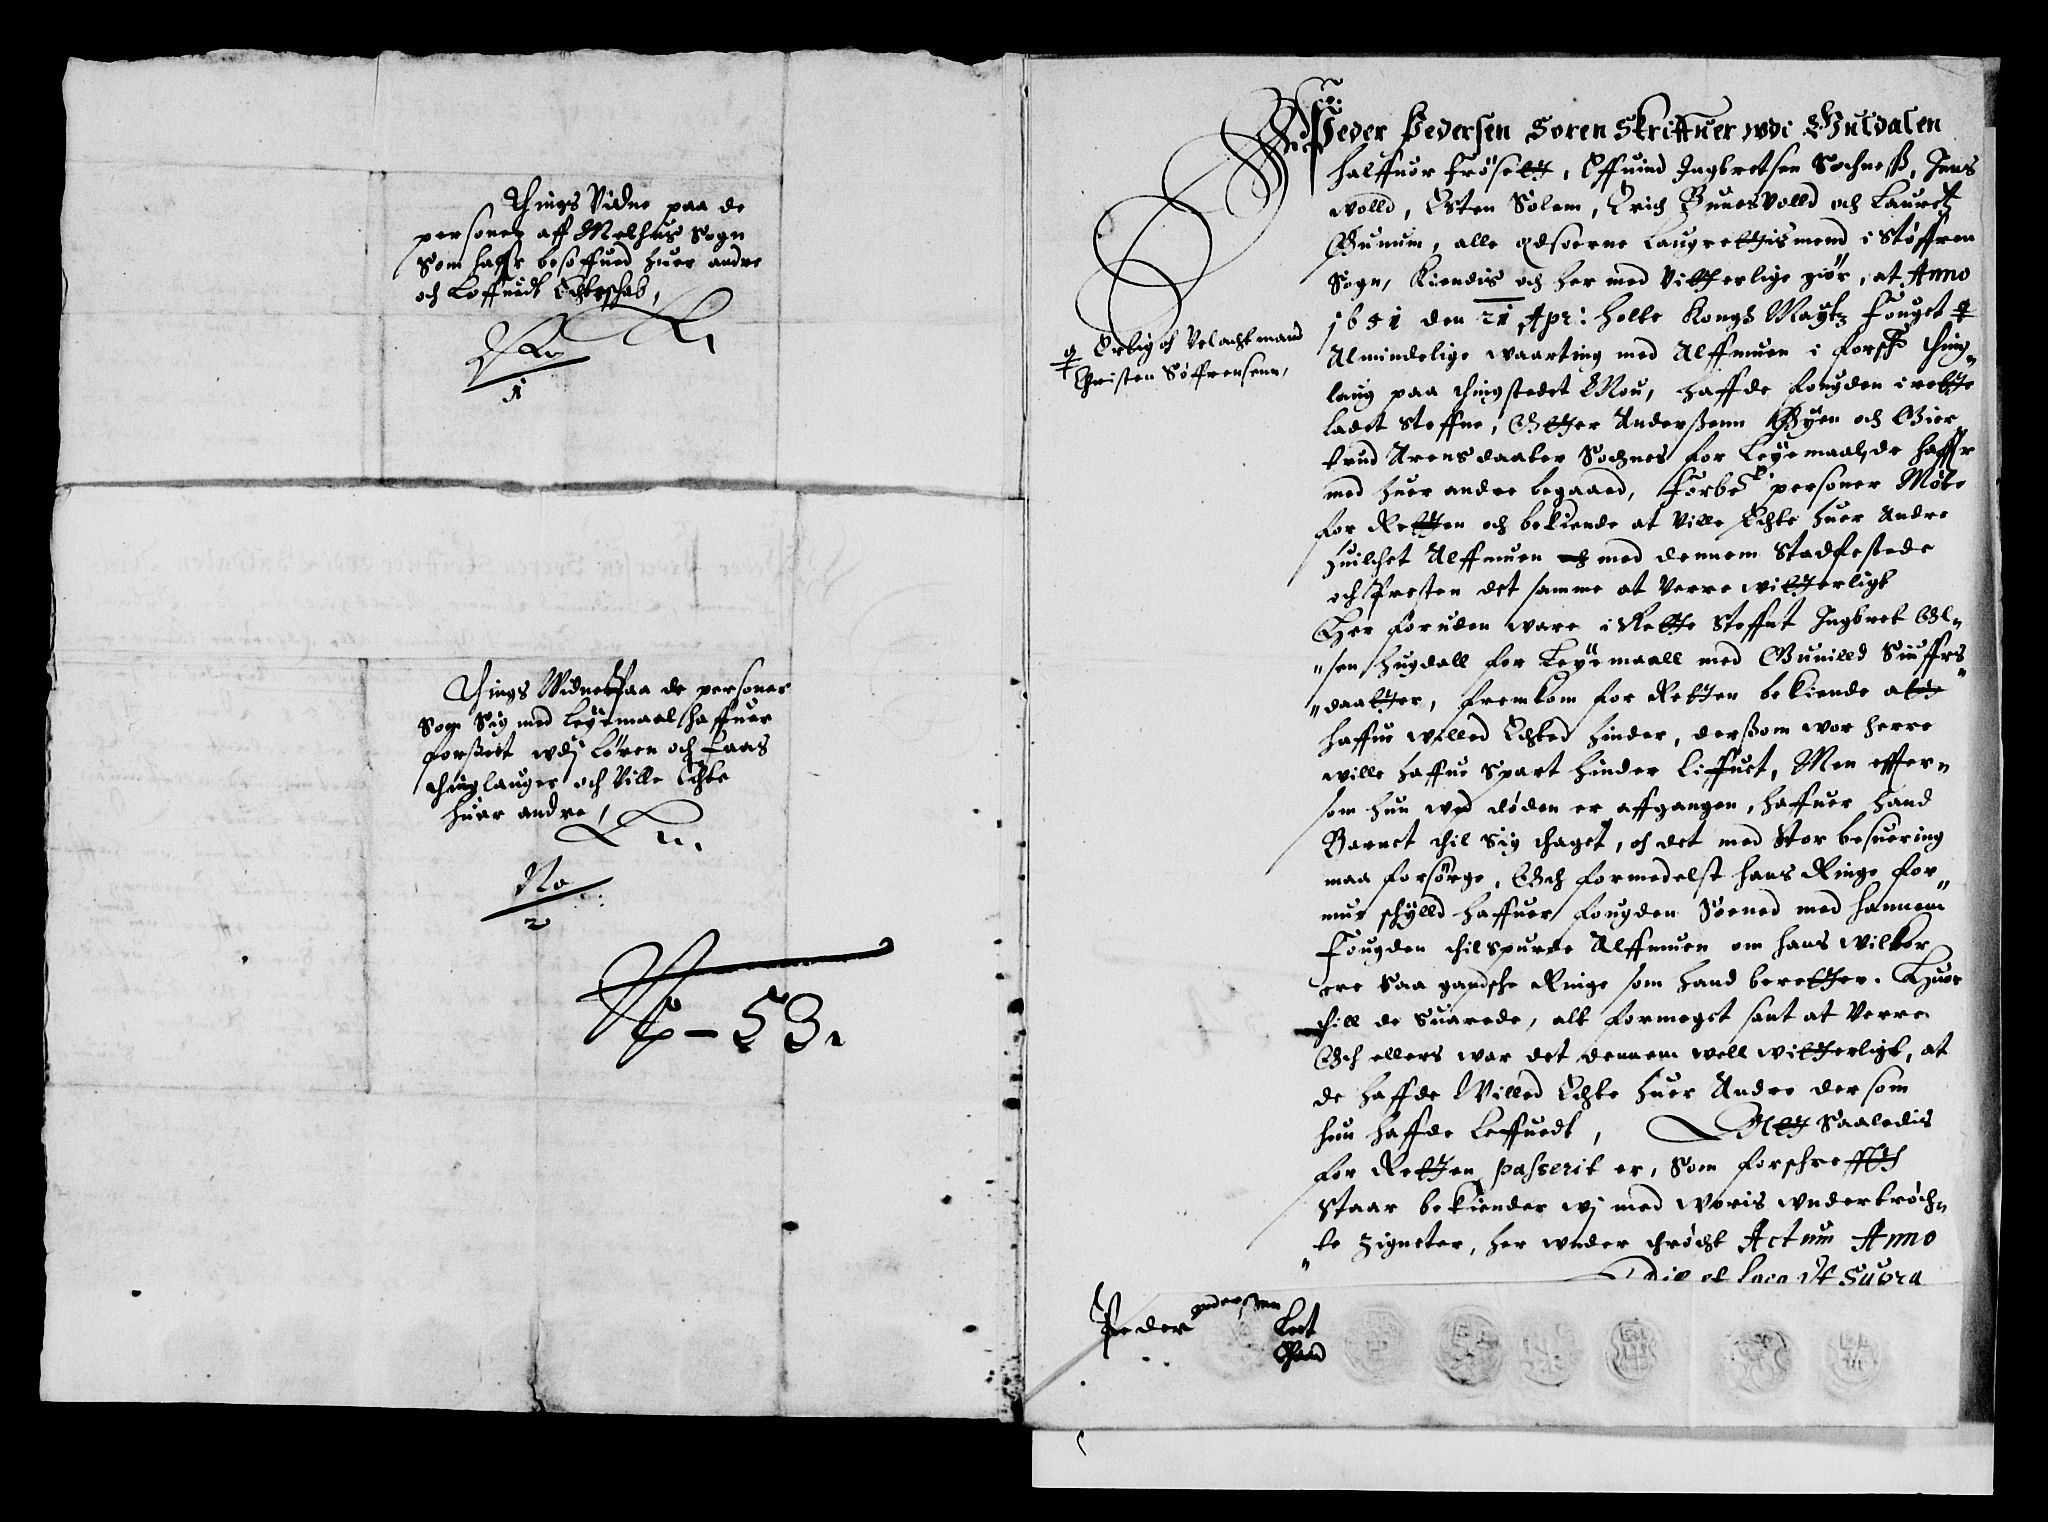 Things Vidne paa de
personer aff Melhus Sogn
Som haffr besoffued huer andre
och Loffuidt Echteschab,
No
1
Things Widne Paa de personer
Som Sig med Leyemaal haffuer
forseet wdj Løren och
thinglauger och Ville Echte
huer andre,
No
2
No - 53.
Peder Pedersen Soren Skriffuer wdi Guldalen
Halffuor Frøsett, Effuind Ingbretsen Sochness, Jens
wolld, Esten Solem, Erich Buuesvolld och Lauretz
Gunum, alle edsoerne Laugrettismend i Støffren
Sogn, Kiendis och her med Vitterlige giør, at Anno
1651 den 21 Apr: holte Kongs Maytz Fouget
Erlig och Velacht mand
Christen Søffrensenn,
Almindelige waarting med Allmuen i forsch thing-
laug paa thingstedet Mou, haffde fougden i rette
ladet Steffne, Otter Anderssenn Byen och Gier
trud Arensdaater Sochnes for Leyemaal, de haffr
med huer andre begaaed, Forbe personer Møtte
for Retten och bekiende at Ville Echte huer Andre
huilchet Allmuen med dennem Stadfestede
och Presten det samme at Verre witterligt
Her foruden ware i Rette Steffnt Ingbret Ol-
sen hugdall for Leyemaall med Gunilld Siuffrs
daatter, fremkom for Retten bekiende att
haffue willed Echted hinder, dersom wor herre
wille haffue Spart hinder Liffuet, Men effter-
som hun wed døden er affgangen, haffuer hand
Barnet thil Sig thaget, och det med Stor besuering
maa forsørge, Och formedelst hans Ringe for
mue schylld haffuer fougden Soened med hannem
Fougden thilspurde Allmuen om hans wilkor
ere Saa gandsche Ringe som hand beretter. Huor
thill de Suarede, alt formeget sant at Verre
Och ellers war det dennem well witterligt, at
de haffde Willed Echte huer Andre der som
hun haffde Leffuedt, Alt Saaledis
for Retten passerit er, Som forschreffth
Staar bekiender wj med woris wndertrøch-
te zigneter, her wnder thrøcht Actum Anno
Die et Loco Vt Supra
Peder Pederssen